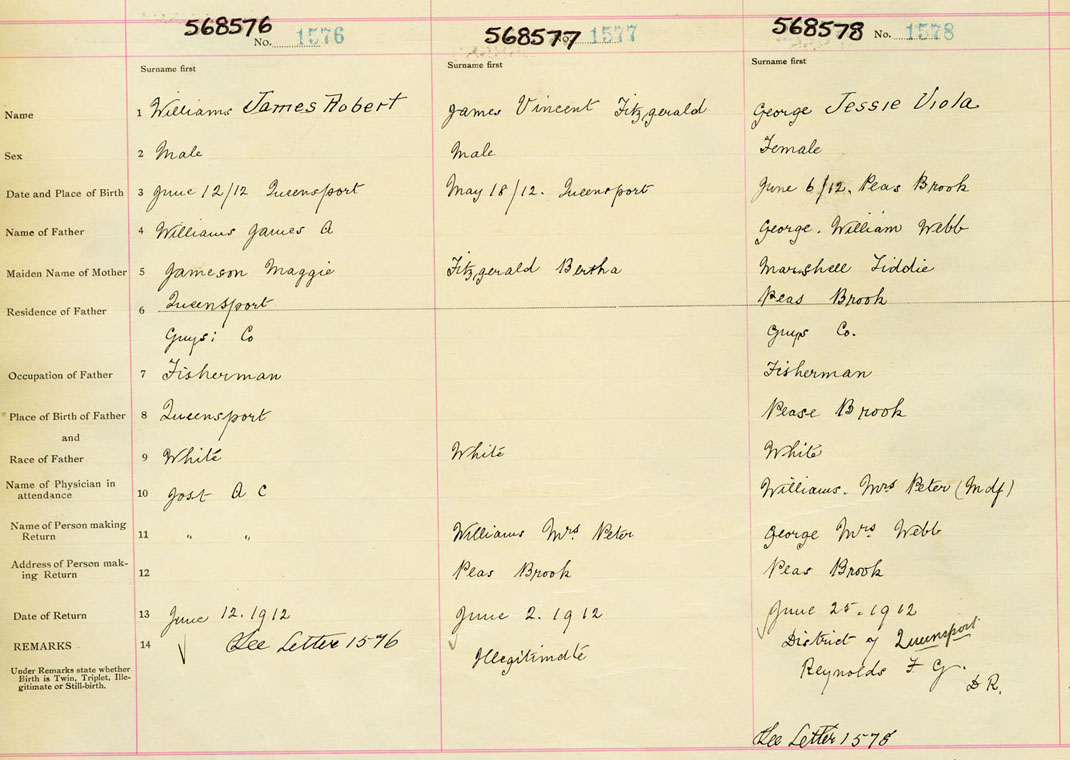 568576 No. 1576
568577 No. 1577
568578 No. 1578
Surname first
Surname first
Surname first
Name 1 Williams James Robert
James Vincent Fitzgerald
George Jessie Viola
Sex 2 Male
Male
Female
Date and Place of Birth 3 June 12/12 Queensport
May 18/12. Queensport
June 6/12. Peas Brook
Name of Father 4 Williams James A
George. William Webb
Maiden Name of Mother 5 Jameson Maggie
Fitzgerald Bertha
Marshell Liddie
Residence of Father 6 Queensport
Peas Brook
Guys: Co
Guys Co.
Occupation of Father 7 Fisherman
Fisherman
Place of Birth of Father 8 Queensport
Pease Brook
and
Race of Father 9 White
White
White
Name of Physician in
attendance 10 Jost A C
Williams. Mrs Peter (Mdf)
Name of Person making
Return 11 " "
Williams Mrs Peter
George Mrs Webb
Address of Person mak-
ing Return 12
Peas Brook
Peas Brook
Date of Return 13 June 12. 1912
June 2. 1912
June 25. 1912
REMARKS 14 See Letter 1576
Illegitimate
District of Queensport
Reynolds F G.
D R.
See Letter 1578
Under Remarks state whether
Birth is Twin, Triplet, Ille-
gitimate or Still-birth.